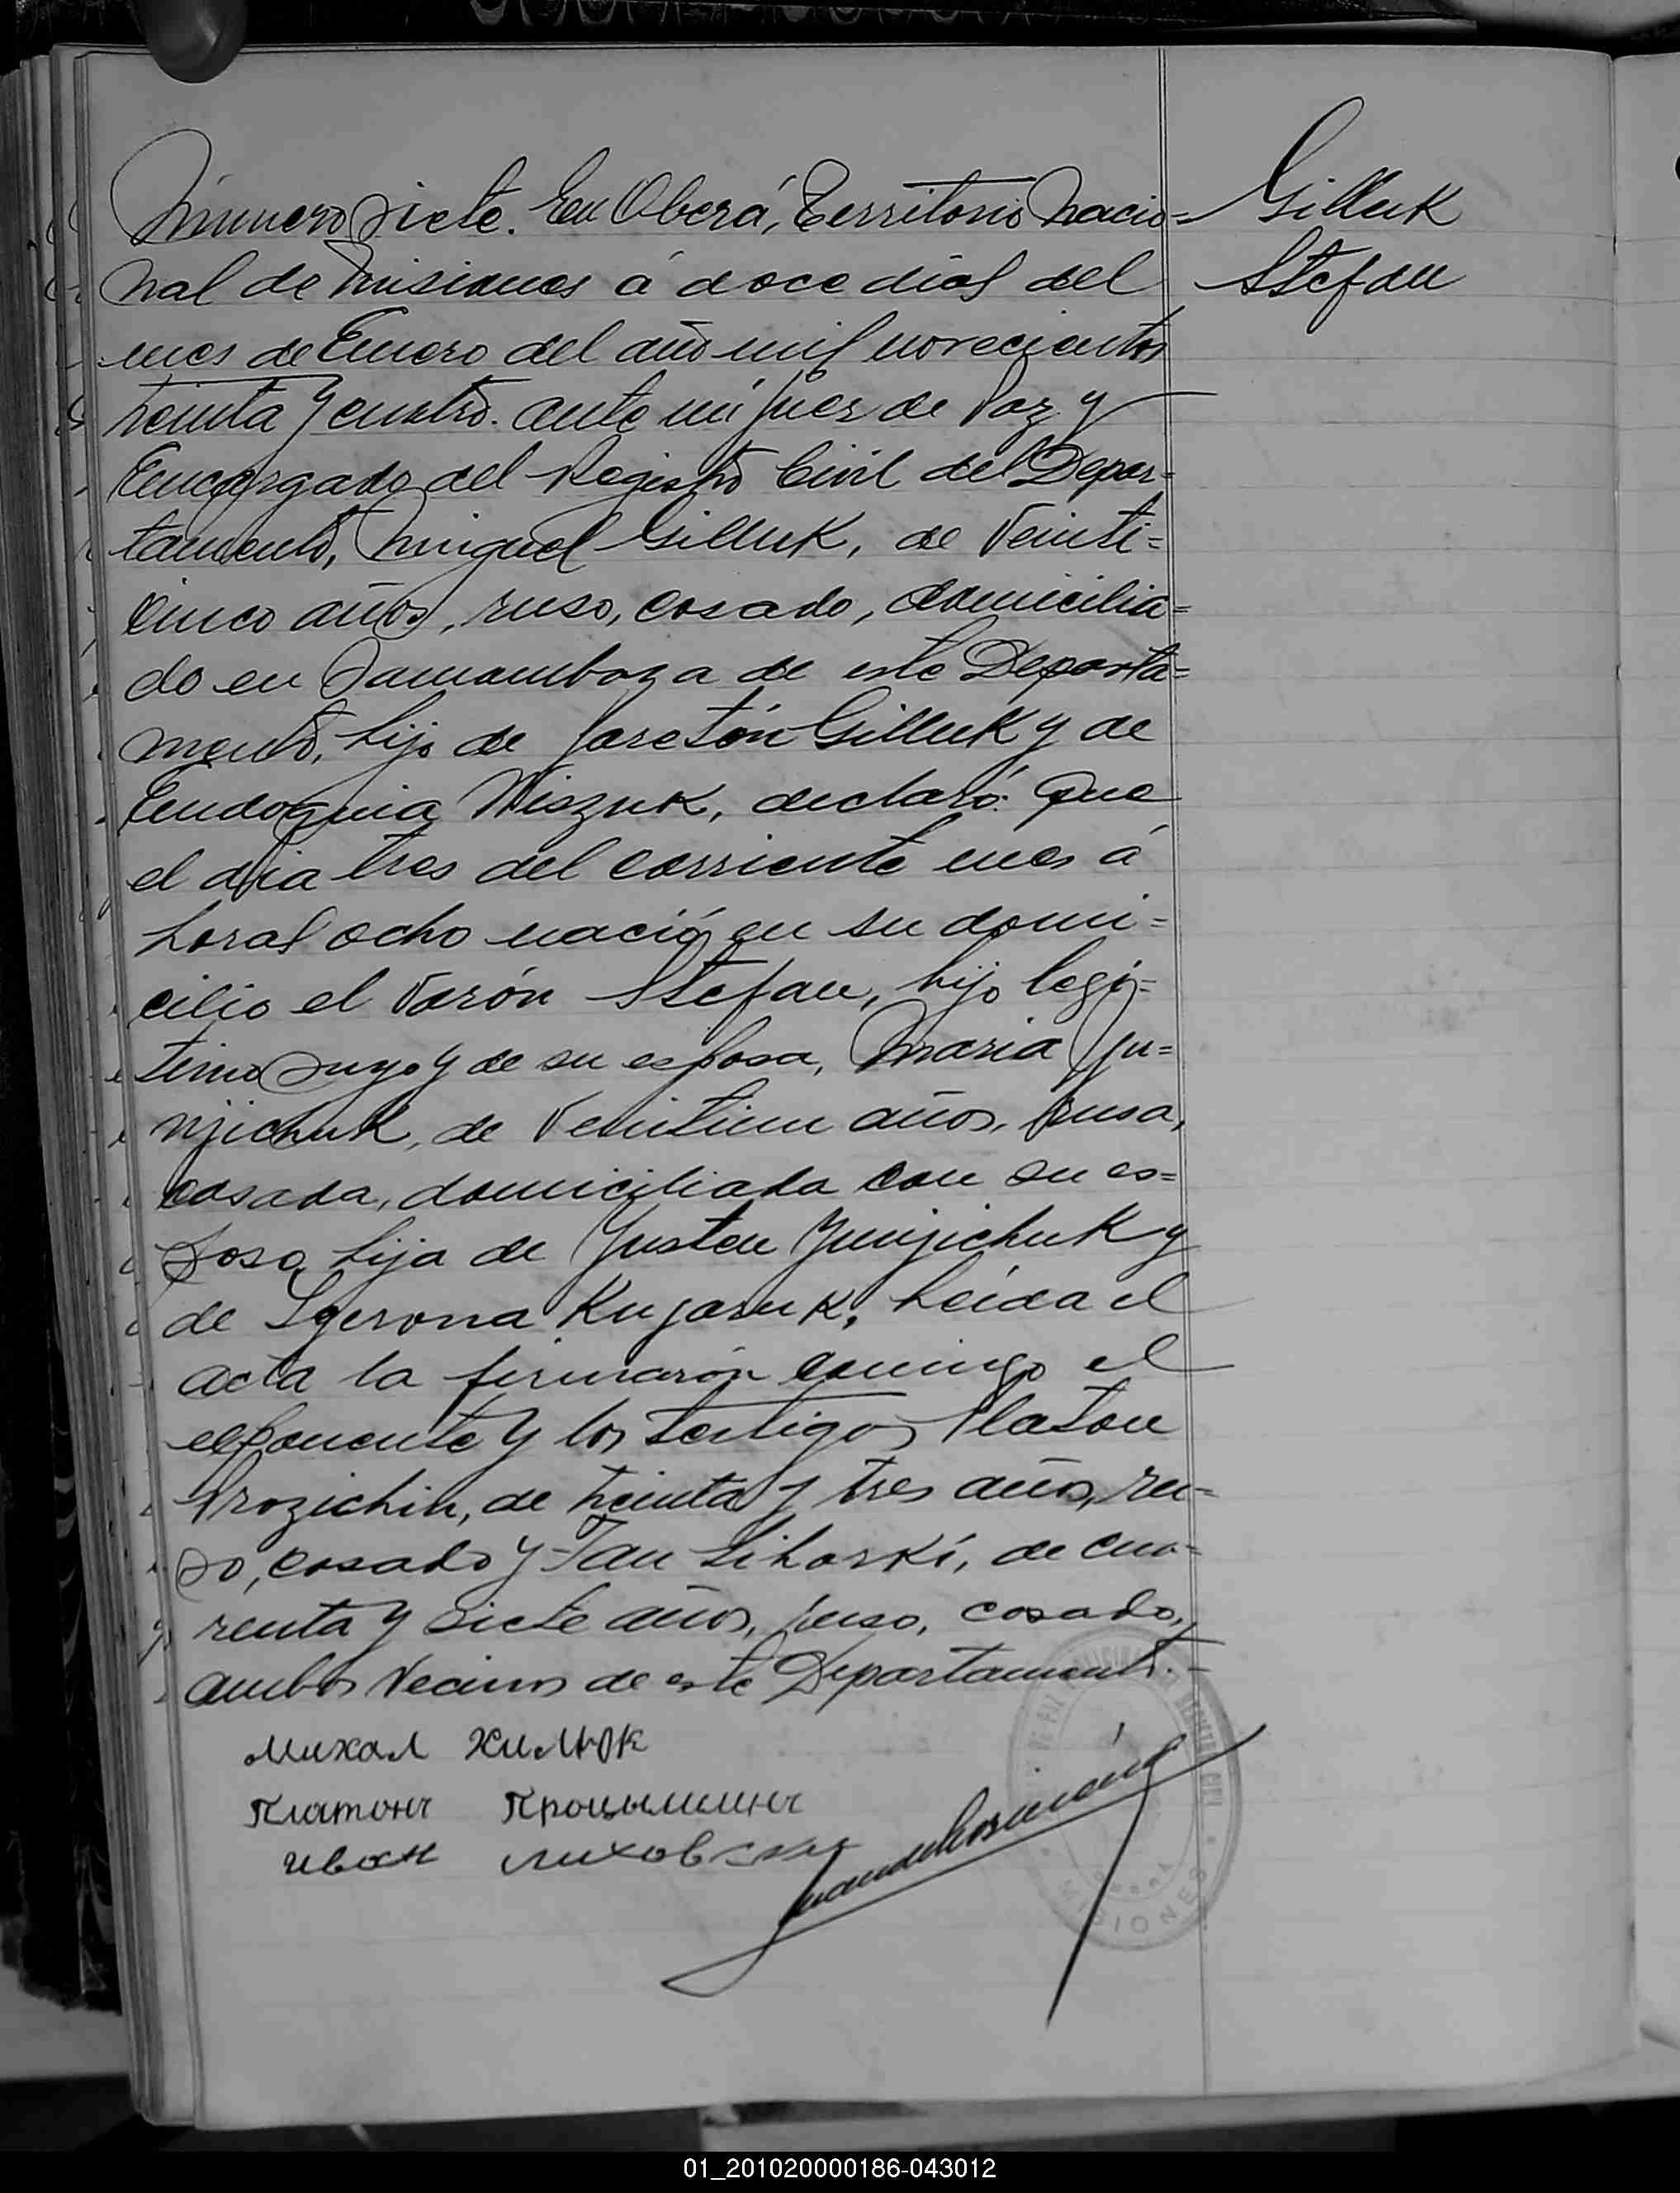 Número Siete. En Oberá, Territorio Nacio=
nal de Misiones á doce días del
mes de Enero del año mil novecientos
treinta y cuatro. ante mi Juez de Paz y
Encargado del Registro Civil del Depar=
tamento, Miguel Gilluk, de Veinti=
cinco años, ruso, casado, domicilia=
do en Samambaya de este Departa=
mento, hijo de Jaretón Gilluk y de
Eudoquia Wiszuk, declaró: Que
el día tres del corriente mes á
horas ocho nació en su domi=
cilio el Varón Stefan, hijo legí=
timo Suyo y de su esposa, Maria Yu=
njichuk, de Veintiun años, rusa,
casada, domiciliada con su es=
posa, hija de Yusten Yunjichuk y
de Kujaruk. Leída el
acta la firmarón conmigo el
exponente y los testigos Platon
Prozichin, de treinta y tres años, ru=
so, casado y Jan Lihorki, de cua=
renta y siete años, ruso, casado,
ambos Vecinos de este Departamento.=
Михал Хилюк
Платонъ Процышинъ
Иван Лиховски
Gilluk
Stefan
MISIONES
01_201020000186-043012